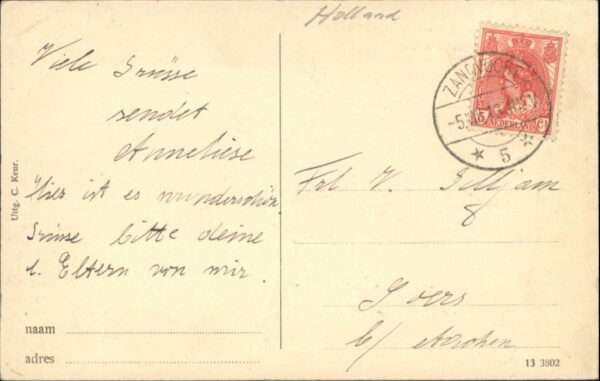 Holland
Viele Grüsse
sendet
Anneliese
Hier ist es wunderschön
Grüsse bitte deine
l. Eltern von mir.
Uitg. C. Keur.
naam
adres
ZANDVOORT
5
NEDERLAND
5 Ct
Frl V. Gilljam
Soers
b/ Aachen
13 3802